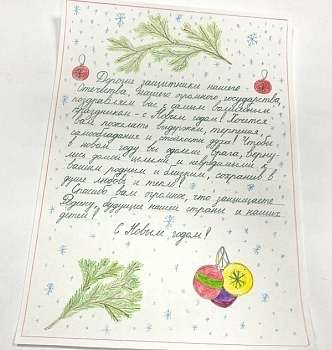 Дорогие защитники нашего
Отечества, нашего огромного государства,
поздравляем вас с самым волшебным
праздником - с Новым годом! Хочется
вам пожелать выдержки, терпения,
самообладания и стойкости духа! Чтобы
в новом году вы одолели врага, верну-
лись домой целыми и невредимыми, к
вашим родным и близким, сохранив в
душе любовь и тепло!
Спасибо вам огромное, что защищаете
Родину, будущее нашей страны и наших
детей!
С Новым годом!